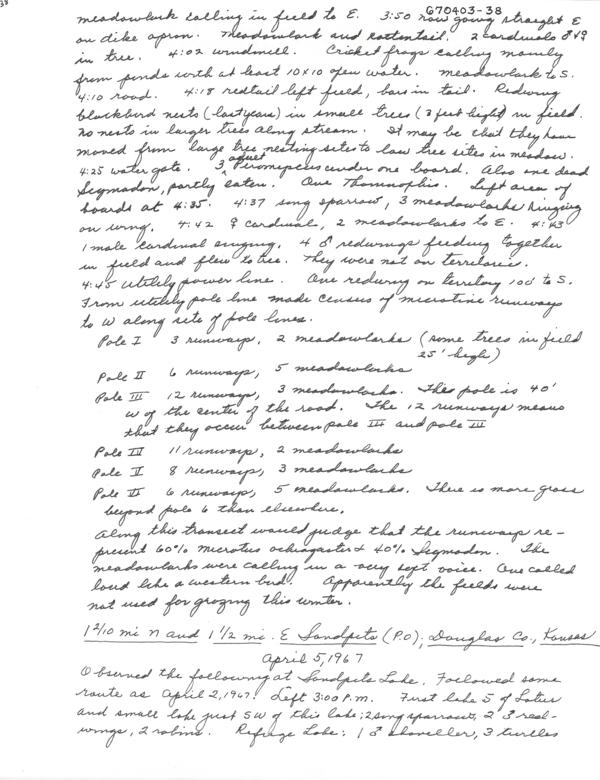 38
670403-38
meadowlark calling in field to E. 3:50 now going straight E
on dike apron. Meadowlark and cottontail. 2 cardinals ♂+♀
in tree. 4:02 windmill. Cricket frogs calling mainly
from ponds with at least 10x10 open water. Meadowlark to S.
4:10 road. 4:18 redtail left field, bars in tail. Redwing
blackbird nests (last years) in small trees (3 feet high) in field.
No nests in larger trees along stream. It may be that they have
moved from large tree nesting sites to low tree sites in meadow.
4:25 water gate. 3 adult Peromyscus under one board. Also one dead
Sigmodon, partly eaten. One Thamnophis. Left area of
boards at 4:35. 4:37 song sparrow, 3 meadowlarks singing
on wing. 4:42 ♀ cardinal, 2 meadowlarks to E. 4:43
1 male cardinal singing. 4 ♂ redwings feeding together
in field and flew to tree. They were not on territories.
4:45 utility power line. One redwing on territory 100' to S.
From utility pole line made census of microtine runways
to W along sets of pole lines.
Pole I 3 runways, 2 meadowlarks (some trees in field
25' high)
Pole II 6 runways, 5 meadowlarks
Pole III 12 runways, 3 meadowlarks. This pole is 40'
W of the center of the road. The 12 runways means
that they occur between pole and pole III
Pole IV 11 runways, 2 meadowlarks
Pole V 8 runways, 3 meadowlarks
Pole VI 6 runways, 5 meadowlarks. There is more grass
beyond pole 6 than elsewhere.
Along this transect would judge that the runways re-
present 60% Microtus ochrogaster + 40% Sigmodon. The
meadowlarks were calling in a very soft voice. One called
loud like a western bird. Apparently the fields were
not used for grazing this winter.
1 2/10 mi N and 1 1/2 mi. E Sandpits (P.O), Douglas Co., Kansas
April 5, 1967
Observed the following at Sandpits Lake. Followed same
route as April 2, 1967. Left 3:00 P.M. First lake S of Lotus
and small lake just SW of this lake; 2 song sparrows, 2 ♂ red-
wings, 2 robins. Refuge Lake: 1 ♂ shoveller, 3 turtles